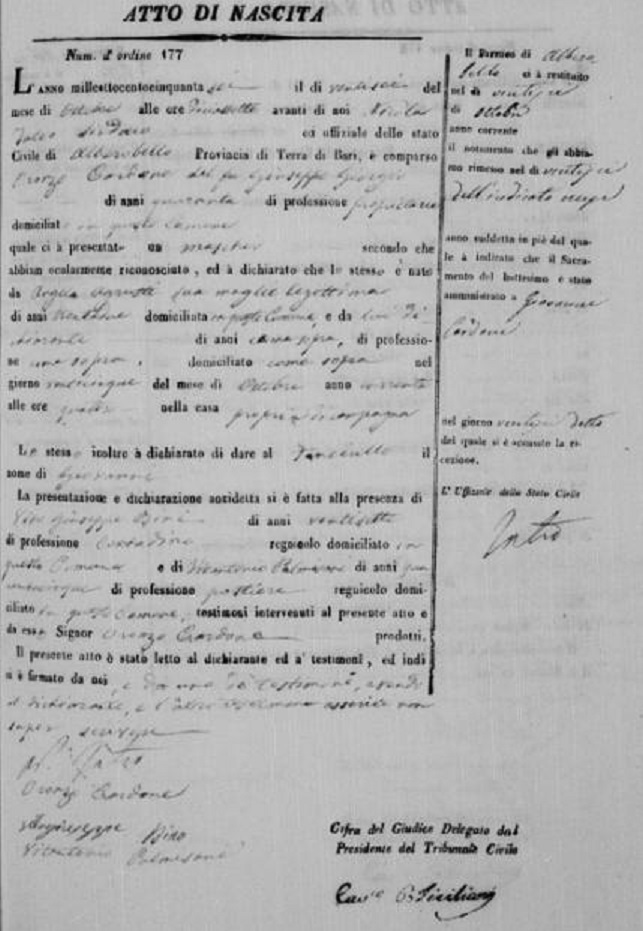 ATTO DI NASCITA
Num. d'ordine 177
L'ANNO millesettocentocinquanta sei il di ventisei del
mese di Ottobre alle ore avanti di noi Nicola
Sindaco ed uffiziale dello stato
Civile di Alberobello Provincia di Terra di Bari, è comparso
Oronzo Cardone del fu Giuseppe Giorgio
di anni quaranta di professione proprietario
domiciliato in questo Comune
quale ci à presentato un maschio secondo che
abbiam ocularmente riconosciuto, ed à dichiarato che lo stesso è nato
da sua moglie legittima
di anni domiciliata in questo Comune, e da lui di
chiarante di anni come sopra, di professio-
ne come sopra, domiciliato come sopra nel
giorno venticinque del mese di Ottobre anno corrente
alle ore nella casa propria in campagna
Lo stesso inoltre à dichiarato di dare al Fanciullo il
nome di Giovanni
La presentazione e dichiarazione anzidetta si è fatta alla presenza di
Vito Giuseppe Bino di anni ventisette
di professione Contadino regnicolo domiciliato in
questo Comune e di Vitantonio Palmisano di anni
di professione regnicolo domi-
ciliato in questo Comune, testimoni intervenuti al presente atto e
da esso Signor Oronzo Cardone prodotti.
Il presente atto è stato letto al dichiarante ed a' testimoni, ed indi
si è firmato da noi, e da uno de' testimoni,
il dichiarante, e l'altro non
saper scrivere
Oronzo Cardone
Vito Giuseppe Bino
Vitantonio Palmisano
Il Parroco di Albero
bello ci à restituito
nel di ventisei
di Ottobre
anno corrente
il notamento che gli abbia-
mo rimesso nel di ventisei
dell'indicato mese
anno suddetto in piè del qua-
le à indicato che il Sacra-
mento del battesimo è stato
amministrato a Giovanni
Cardone
nel giorno ventisei detto
del quale si è accusato la ri-
cezione.
L' Uffiziale dello Stato Civile
Cifra del Giudice Delegato dal
Presidente del Tribunale Civile
Siciliani